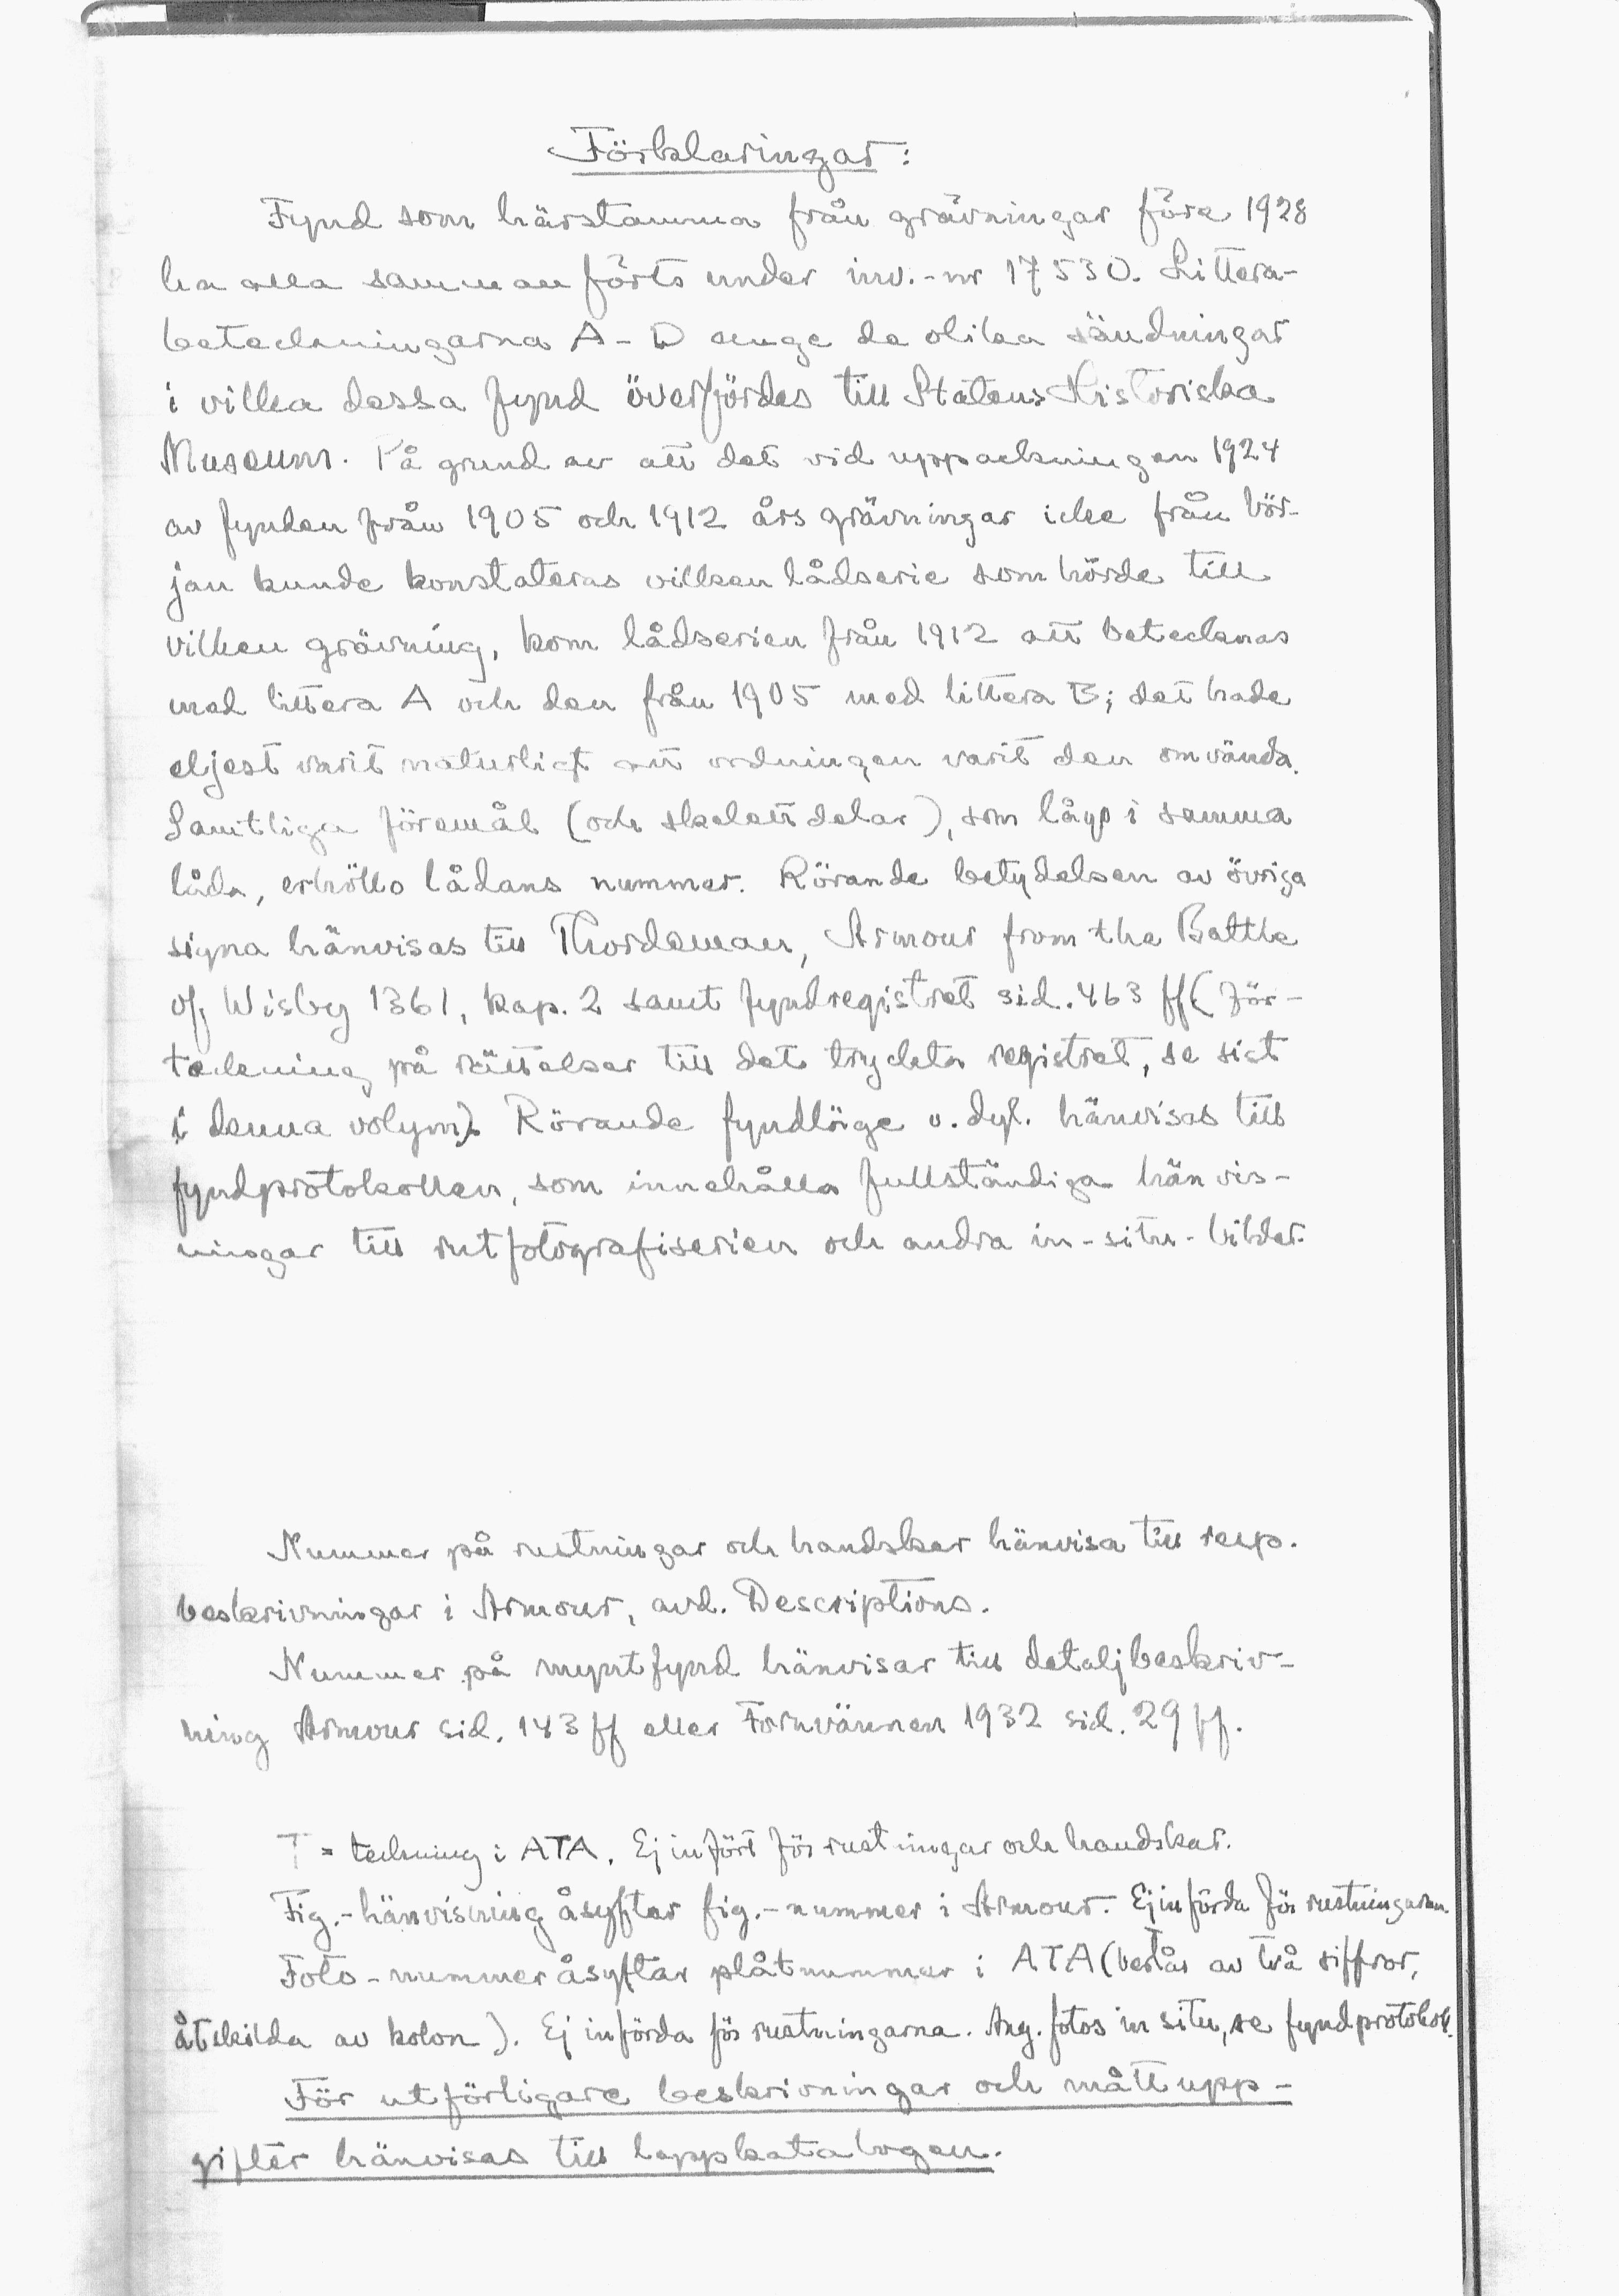 Förklaringar:
Fynd som härstamma från grävningar före 1928
ha alla sammanförts under inv.-nr 17530. Littera-
beteckningarna A-D ange de olika sändningar
i vilka dessa fynd överfördes till Statens Historiska
Museum. På grund av att det vid uppackningen 1924
av fynden från 1905 och 1912 års grävningar icke från bör-
jan kunde konstateras vilken lådserie som hörde till
vilken grävning, kom lådserien från 1912 att betecknas
med littera A och den från 1905 med littera B; det hade
eljest varit naturligt att ordningen varit den omvända.
Samtliga föremål (och skelettdelar), som lågo i samma
låda, erhöllo lådans nummer. Rörande betydelsen av övriga
signa hänvisas till Thordeman, Armour from the Battle
of Wisby 1361, kap. 2 samt fyndregistret sid. 463 ff (För-
teckning på rättelser till det tryckta registret, se sist
i denna volym). Rörande fyndläge o. dyl. hänvisas till
fyndprotokollen, som innehålla fullständiga hänvis-
ningar till rutfotografiserien och andra in-situ-bilder.
Nummer på rustningar och handskar hänvisa till resp.
beskrivningar i Armour, avd. Descriptions.
Nummer på myntfynd hänvisar till detaljbeskriv-
ning Armour sid. 143 ff eller Fornvännen 1932 sid. 29 ff.
T = teckning i ATA. Ej infört för rustningar och handskar.
Fig.-hänvisning åsyftar fig.-nummer i Armour. Ej införda för rustningarna.
Foto-nummer åsyftar plåtnummer i ATA (består av två siffror,
åtskilda av kolon). Ej införda för rustningarna. Ang. fotos in situ, se fyndprotokoll.
För utförligare beskrivningar och måttupp-
gifter hänvisas till lappkatalogen.